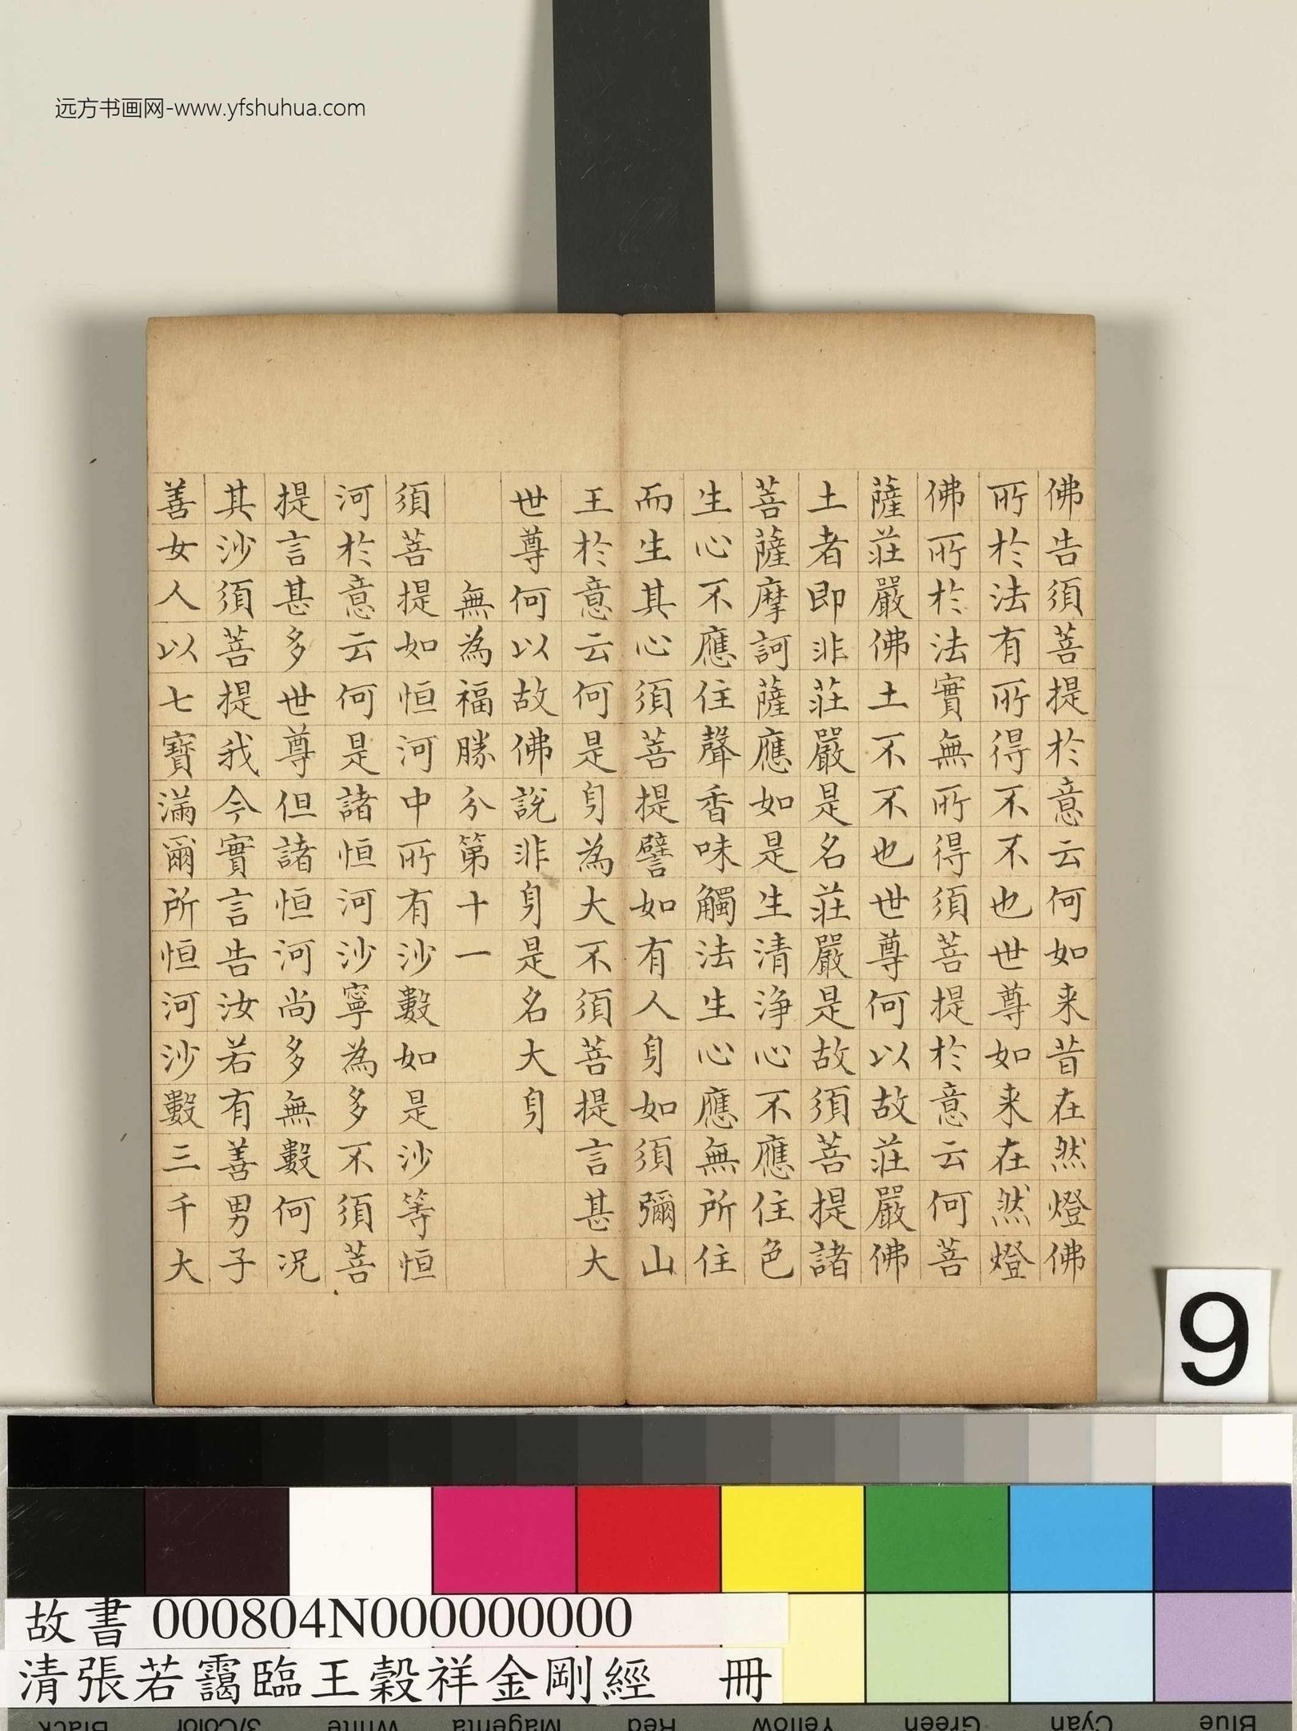 远方书画网-www.yfshuhua.com
佛告須菩提於意云何如来昔在然燈佛
所於法有所得不不也世尊如来在然燈
佛所於法實無所得須菩提於意云何菩
薩莊嚴佛土不不也世尊何以故莊嚴佛
土者即非莊嚴是名莊嚴是故須菩提諸
菩薩摩訶薩應如是生清淨心不應住色
生心不應住聲香味觸法生心應無所住
而生其心須菩提譬如有人身如須彌山
王於意云何是身為大不須菩提言甚大
世尊何以故佛說非身是名大身
無為福勝分第十一
須菩提如恒河中所有沙數如是沙等恒
河於意云何是諸恒河沙寧為多不須菩
提言甚多世尊但諸恒河尚多無數何况
其沙須菩提我今實言告汝若有善男子
善女人以七寶滿爾所恒河沙數三千大
9
故書 000804N000000000
清張若靄臨王穀祥金剛經 冊
Black 3/Color White Magenta Red Yellow Green Cyan Blue